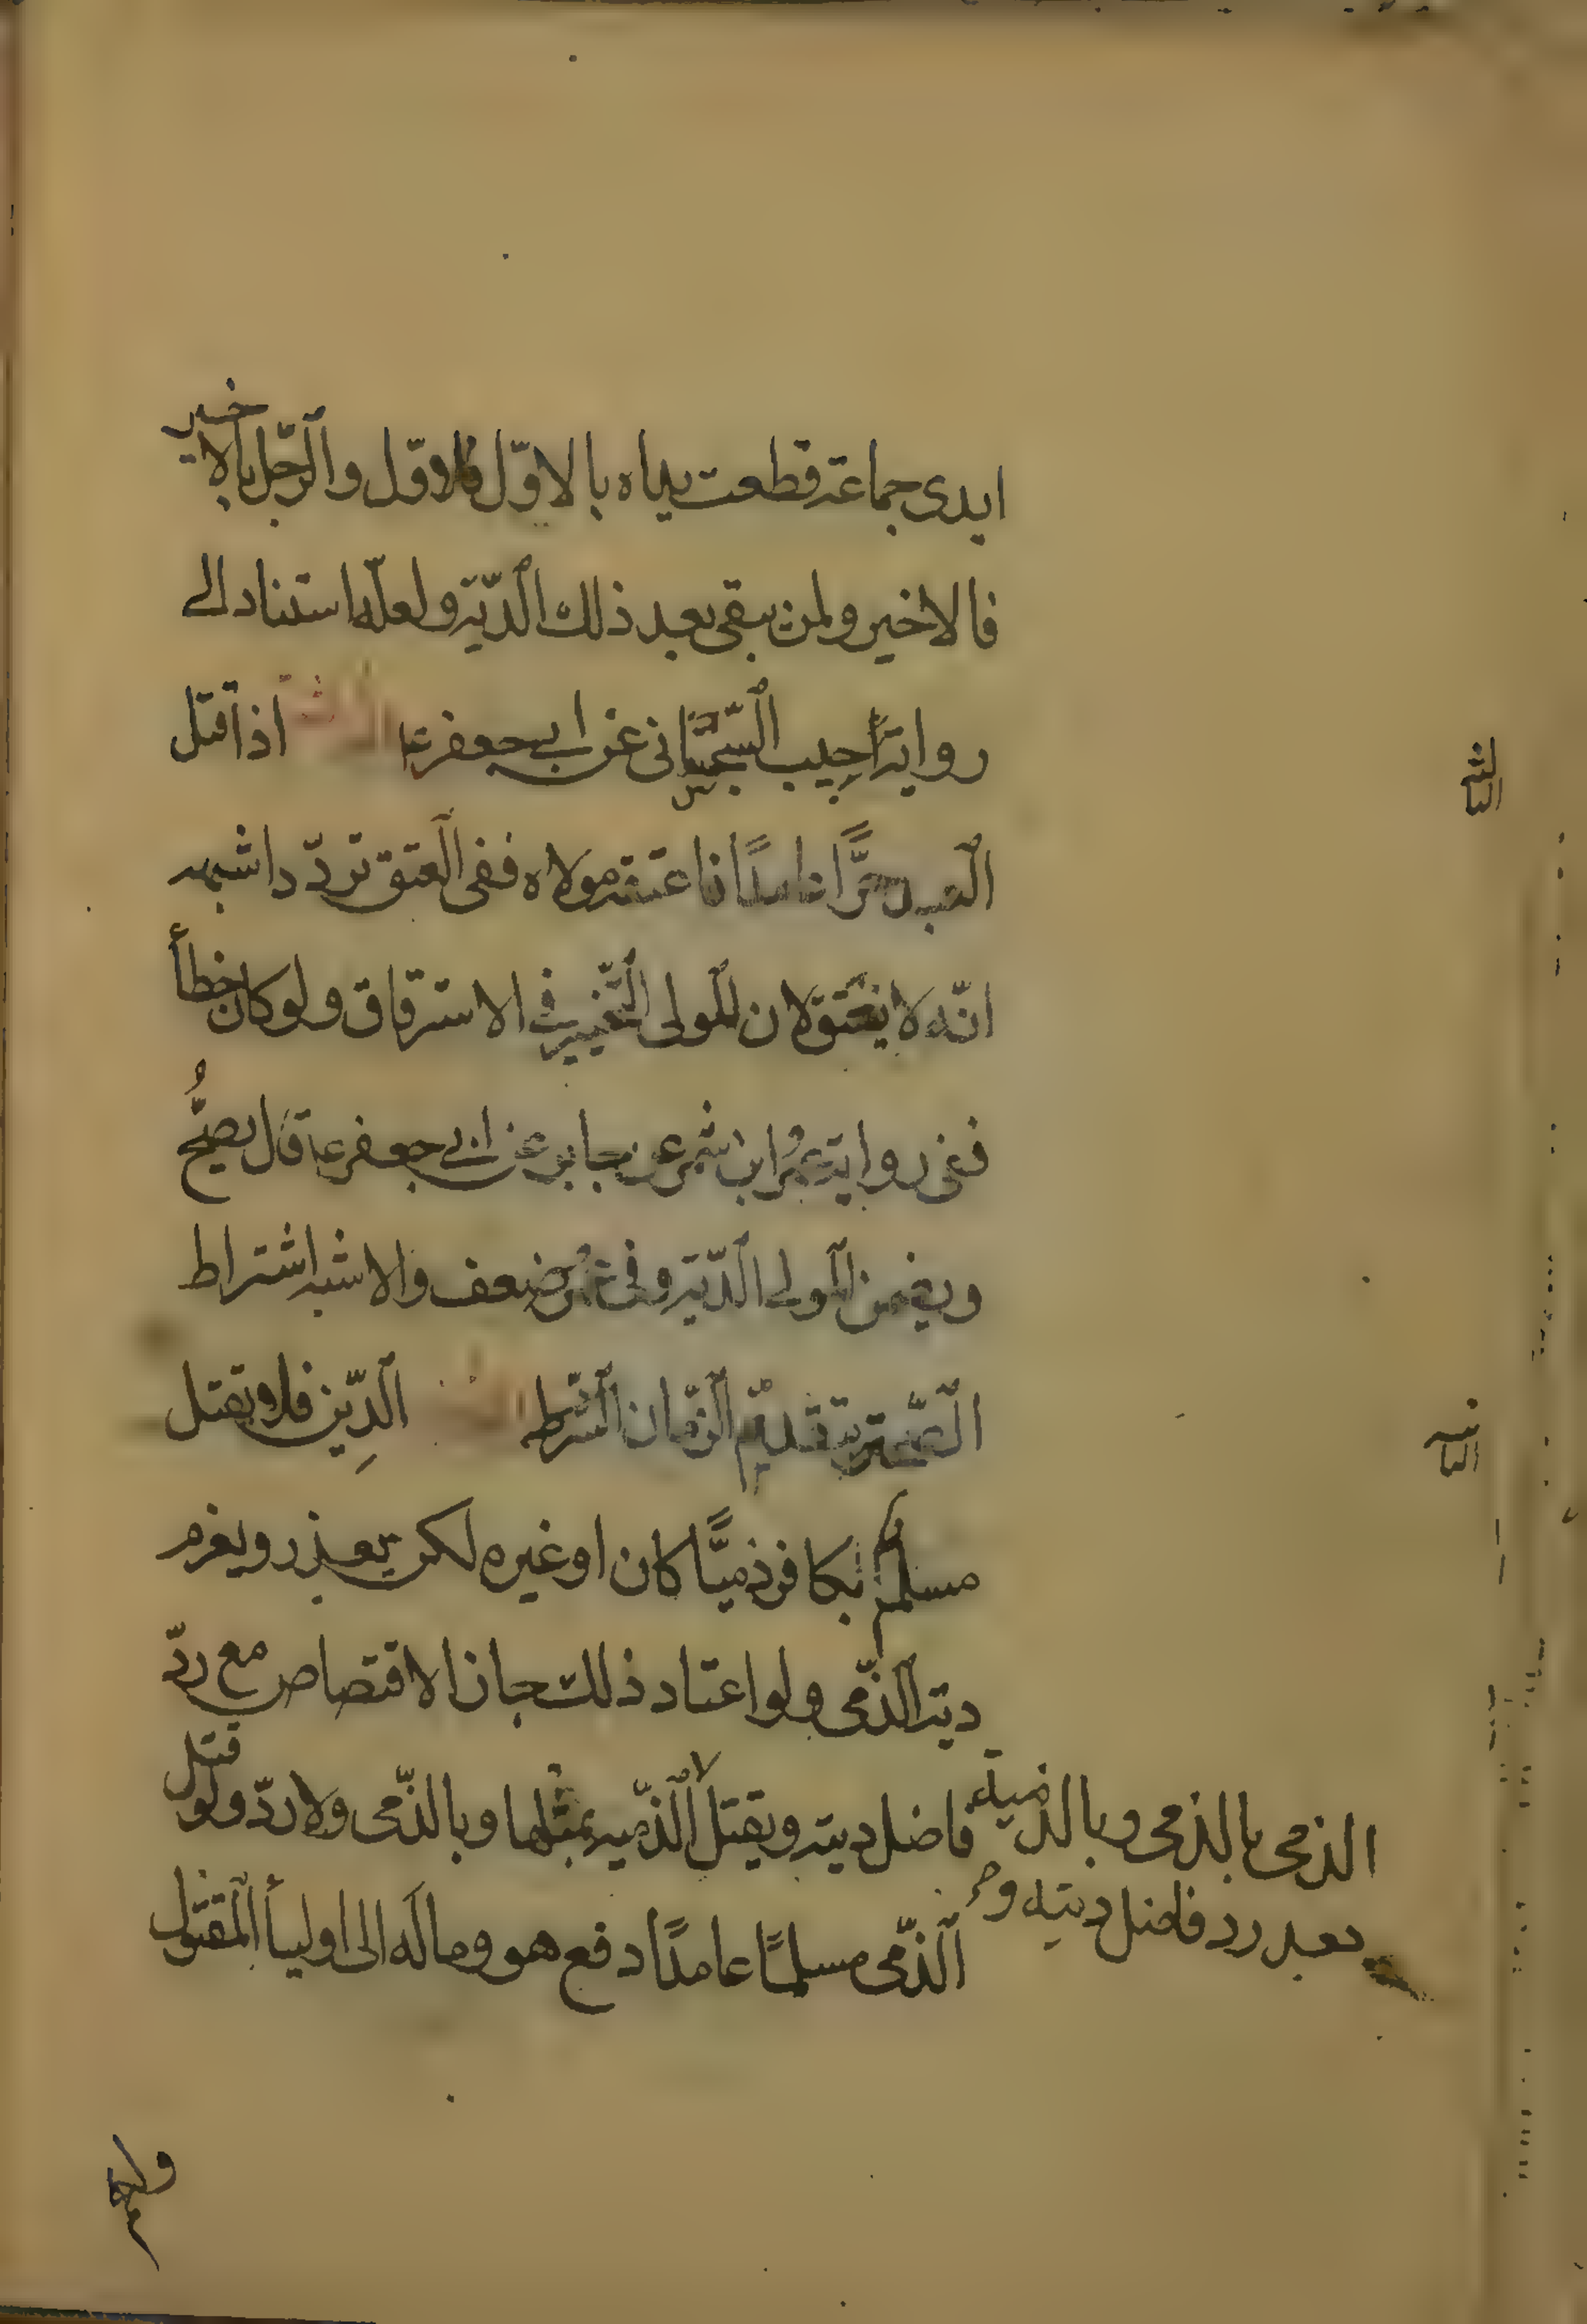 ايدى جماعة قطعت يداه بالاوّل فالاوّل والرّجل بالاخير
فالاخير ولمن يبقى بعد ذلك الدّية ولعلّه استنادا الى
رواية حبيب السّجستانى عن ابى جعفر ع اذا قتل
العبد حرًّا عامدًا فاعتقه مولاه ففى العتق تردّد اشبهه
انّه لا ينعتق لان للمولى التّخيير فى الاسترقاق ولو كان خطأ
ففى رواية عمرو ابن شمر عن جابر عن ابى جعفر ع قال يصحّ
ويضمن المولى الدّية وفى عمرو ضعف والاشبه اشتراط
الصّحّة بتقديم الضّمان الشّرط الدّين فلا يقتل
مسلم بكافر ذميًّا كان او غيره لكن يعذر ويغرم
دية الذّمى ولو اعتاد ذلك جاز الاقتصاص مع ردّ
فاضل ديته ويقتل الذّمية بمثلها وبالذّمى ولا ردّ ولو قتل
الذّمى مسلمًا عامدًا دفع هو وماله الى اوليأ المقتول
الذمى بالذمى وبالذمية
بعد رد فاضل ديته و